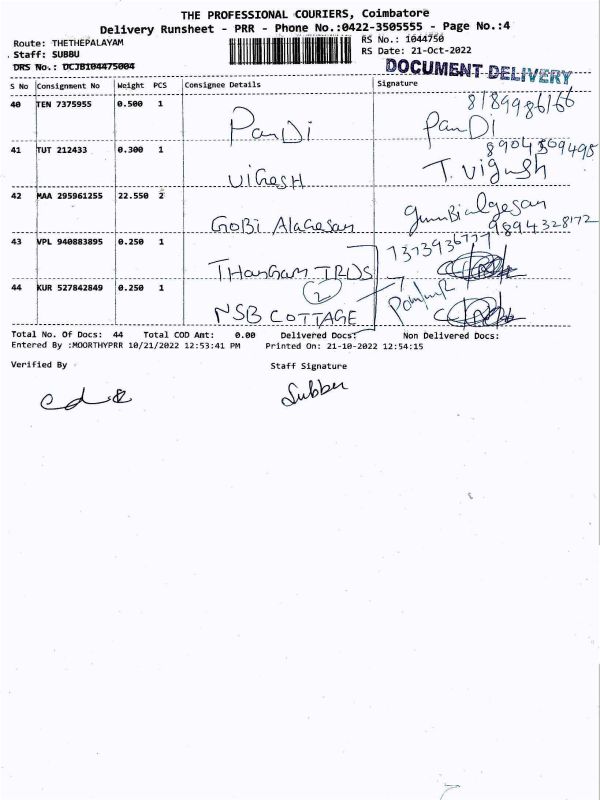 THE PROFESSIONAL COURIERS, Coimbatore
Delivery Runsheet - PRR - Phone No.:0422-3505555 - Page No.:4
Route: THETHEPALAYAM
RS No.: 1044750
Staff: SUBBU
RS Date: 21-Oct-2022
DRS No.: DCJB104475004
DOCUMENT DELIVERY
S No Consignment No Weight PCS Consignee Details Signature
8189986166
40 TEN 7375955 0.500 1
PanDi PanDi
8904509495
41 TUT 212433 0.300 1
ViGneSH T. Vignesh
42 MAA 295961255 22.550 2
GoBi AlaGesan
9894328172
43 VPL 940883895 0.250 1
7373936777
THanGam TRDS
44 KUR 527842849 0.250 1
2
NSB COTTAGE
Total No. Of Docs: 44 Total COD Amt: 0.00 Delivered Docs: Non Delivered Docs:
Entered By :MOORTHYPRR 10/21/2022 12:53:41 PM Printed On: 21-10-2022 12:54:15
Verified By Staff Signature
Subber